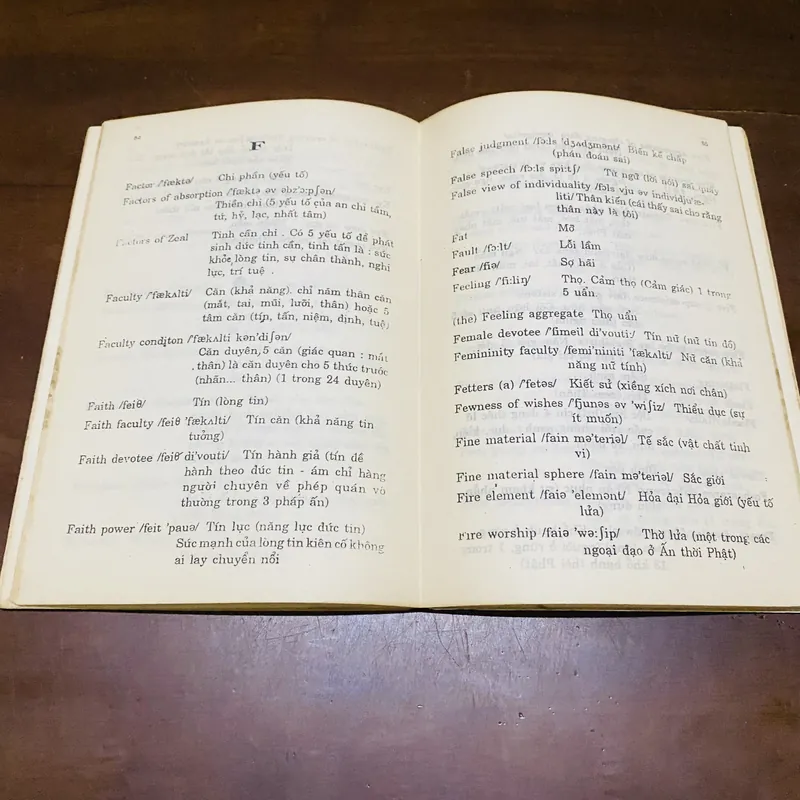 F
Factor /'fæktə/ Chi phần (yếu tố)
Factors of absorption /'fæktə əv əbz'ɔ:pʃən/
Thiền chi (5 yếu tố của an chi tầm,
tứ, hỷ, lạc, nhất tâm)
Factors of Zeal Tinh cần chi. Có 5 yếu tố để phát
sinh đức tinh cần, tinh tấn là : sức
khỏe, lòng tin, sự chân thành, nghị
lực, trí tuệ .
Faculty /'fækʌlti/ Căn (khả năng). chỉ năm thân căn
(mắt, tai, mũi, lưỡi, thân) hoặc 5
tâm căn (tín, tấn, niệm, định, tuệ)
Faculty conditon /'fækʌlti kən'diʃən/
Căn duyên, 5 căn (giác quan : mắt
. thân) là căn duyên cho 5 thức trước
(nhãn... thân) (1 trong 24 duyên)
Faith /feiθ/ Tín (lòng tin)
Faith faculty /feiθ 'fækʌlti/ Tín căn (khả năng tin
tưởng)
Faith devotee /feiθ di'vouti/ Tín hành giả (tín đề
hành theo đức tin - ám chỉ hàng
người chuyên về phép quán vô
thường trong 3 pháp ấn)
Faith power /feit 'pauə/ Tín lục (năng lực đức tin)
Sức mạnh của lòng tin kiên cố không
ai lay chuyển nổi
False judgment /fɔ:ls 'dʒʌdʒmənt/ Biến kế chấp
(phán đoán sai)
False speech /fɔ:ls spi:tʃ/ Từ ngữ (lời nói) sai quấy
False view of individuality /fɔls vju əv individju'æ-
liti/ Thân kiến (cái thấy sai cho rằng
thân này là tôi)
Fat Mỡ
Fault /fɔ:lt/ Lỗi lầm
Fear /fiə/ Sợ hãi
Feeling /'fi:liŋ/ Thọ. Cảm thọ (Cảm giác) 1 trong
5 uẩn.
(the) Feeling aggregate Thọ uẩn
Female devotee /'fimeil di'vouti:/ Tín nữ (nữ tín đồ)
Femininity faculty /femi'niniti 'fækʌlti/ Nữ căn (khả
năng nữ tính)
Fetters (a) /'fetəs/ Kiết sử (xiềng xích nơi chân)
Fewness of wishes /'fjunəs əv 'wiʃiz/ Thiểu dục (sự
ít muốn)
Fine material /fain mə'teriəl/ Tế sắc (vật chất tinh
vi)
Fine material sphere /fain mə'teriəl/ Sắc giới
Fire element /faiə 'elemənt/ Hỏa đại Hỏa giới (yếu tố
lửa)
Fire worship /faiə 'wə:ʃip/ Thờ lửa (một trong các
ngoại đạo ở Ấn thời Phật)